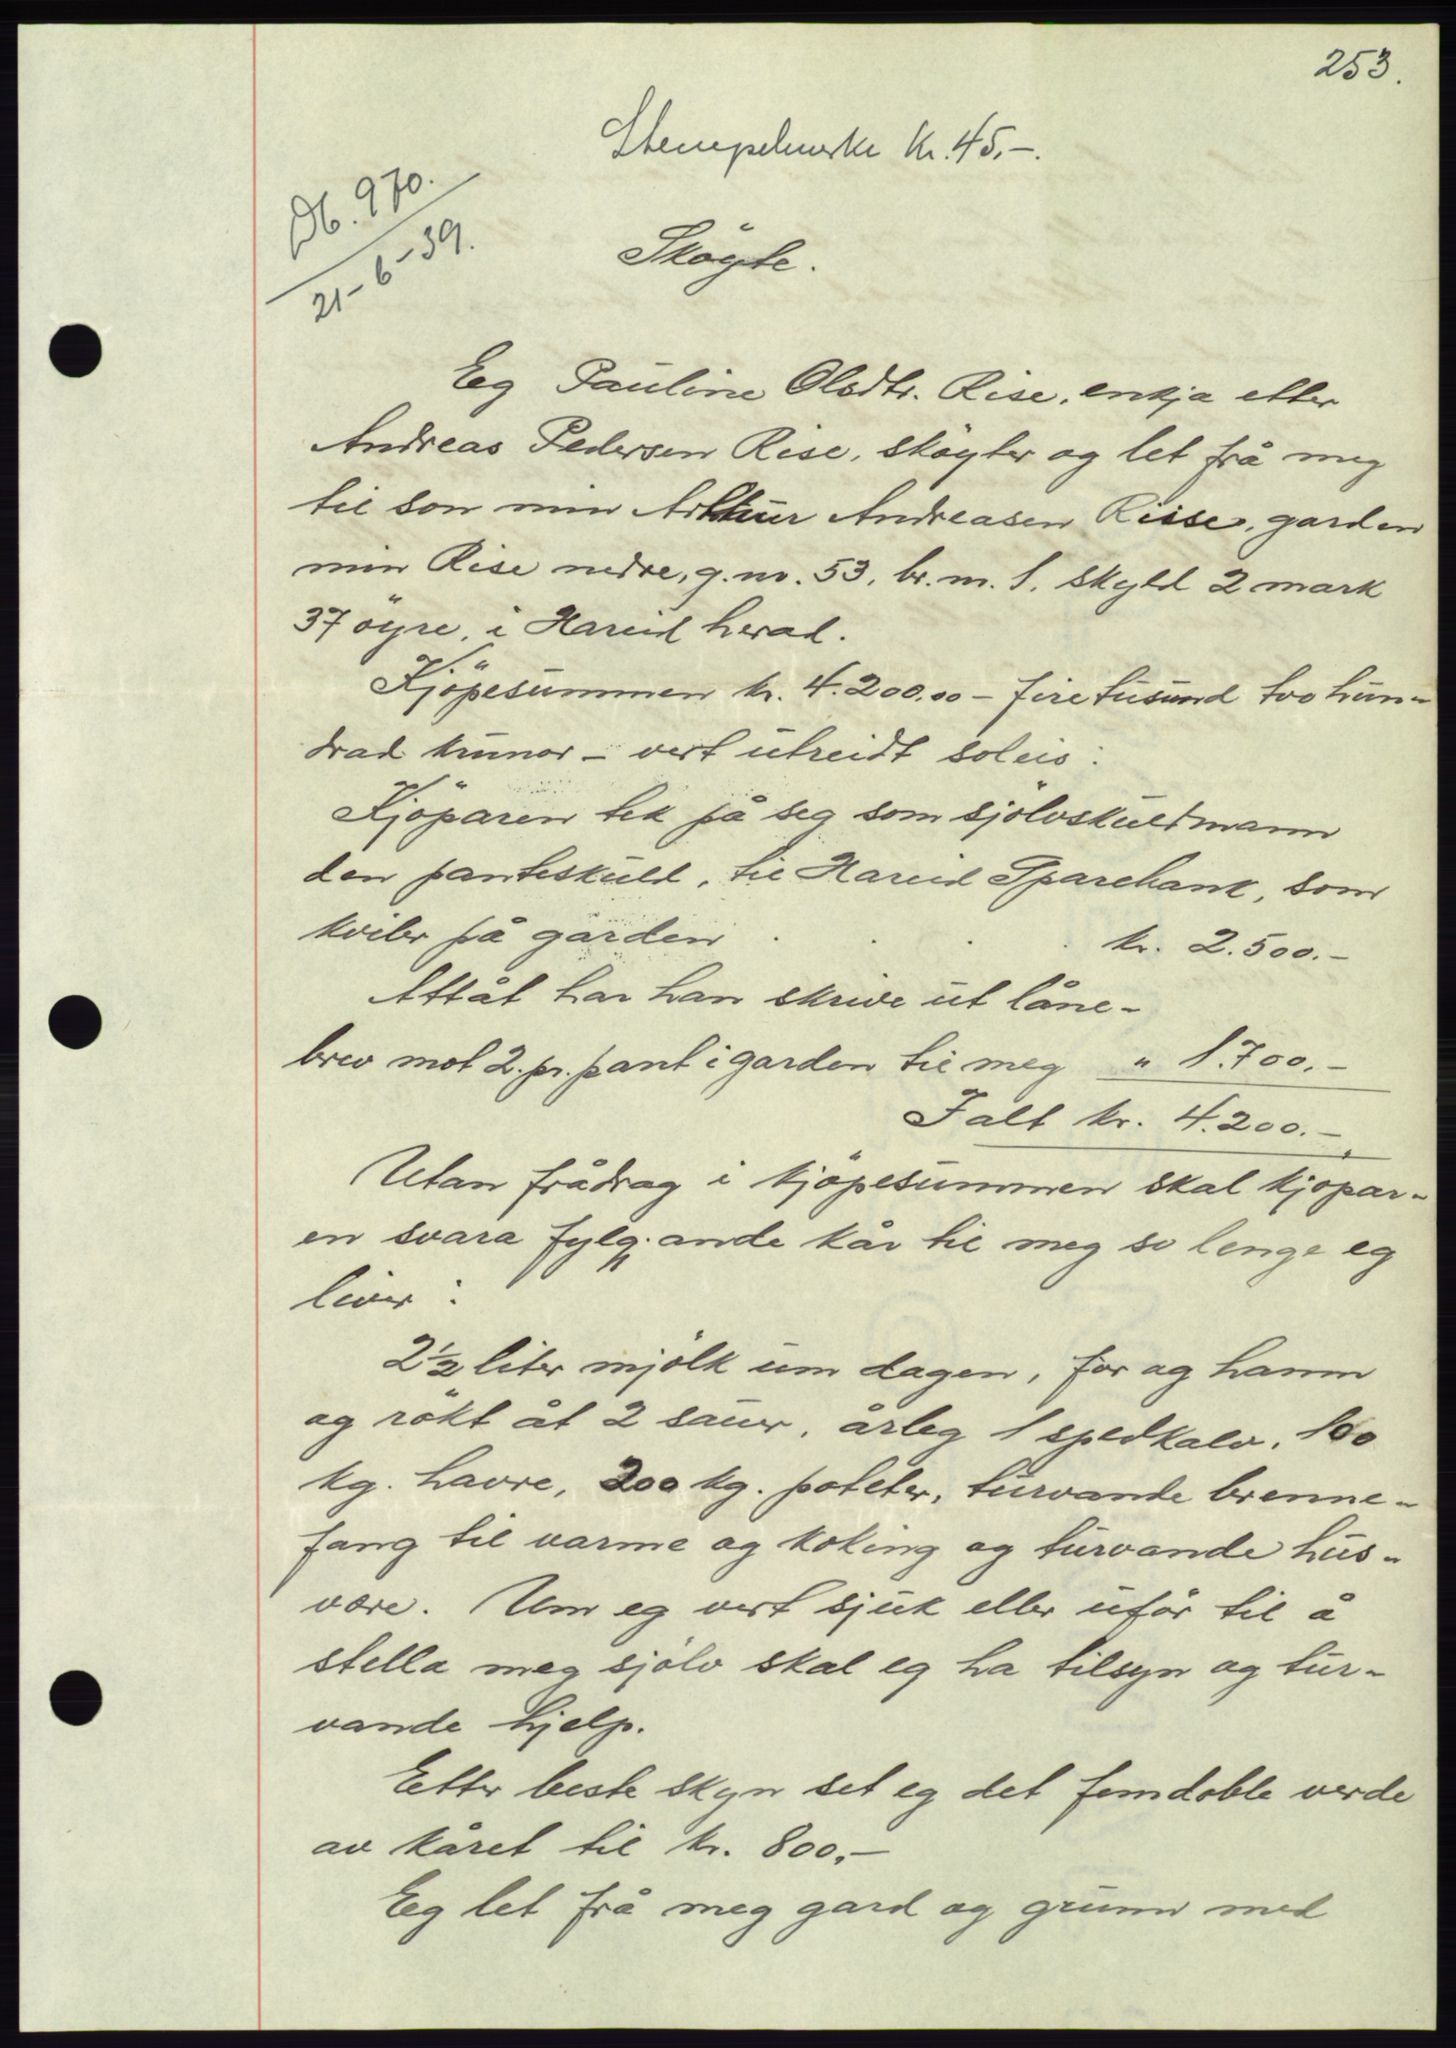 253.
Stempelmerke kr. 45.-.
Db. 970.
21-6-39.
Sköyte.
Eeg Pauline Olsdtr. Rise, enkja etter
Andreas Pedersen Rise, sköyter og let frå meg
til son min Arthur Andreasen Risse, garden
min Rise nedre, g.nr. 53, br.nr. 1, skyld 2 mark
37 öyre, i Hareid herad.
Kjöpesummen kr. 4.200.00 - fire tusund tvo hun-
drad krunor - vert utreidt soleis:
Kjöparen tek på seg som sjölvskuldmann
den panteskuld, til Hareid Sparebank, som
kviler på garden . . . . kr. 2.500.-
Attåt har han skrive ut låne-
brev mot 2. pr. pant i garden til meg " 1.700.-
I alt kr. 4.200.-
Utan frådrag i kjöpesummen skal kjöpar-
en svara fylgj.ande kår til meg so lenge eg
liver:
2½ liter mjölk um dagen, for og hamn
og rökt åt 2 sauer, årleg 1 spedkalv, 100
kg. havre, 200 kg. poteter, turvande brenne-
fang til varme og koking og turvande hus-
være. Um eg vert sjuk eller uför til å
stella meg sjölv skal eg ha tilsyn og tur-
vande hjelp.
Etter beste skyn set eg det femdoble verde
av kåret til kr. 800.-
Eeg let frå meg gard og grunn med